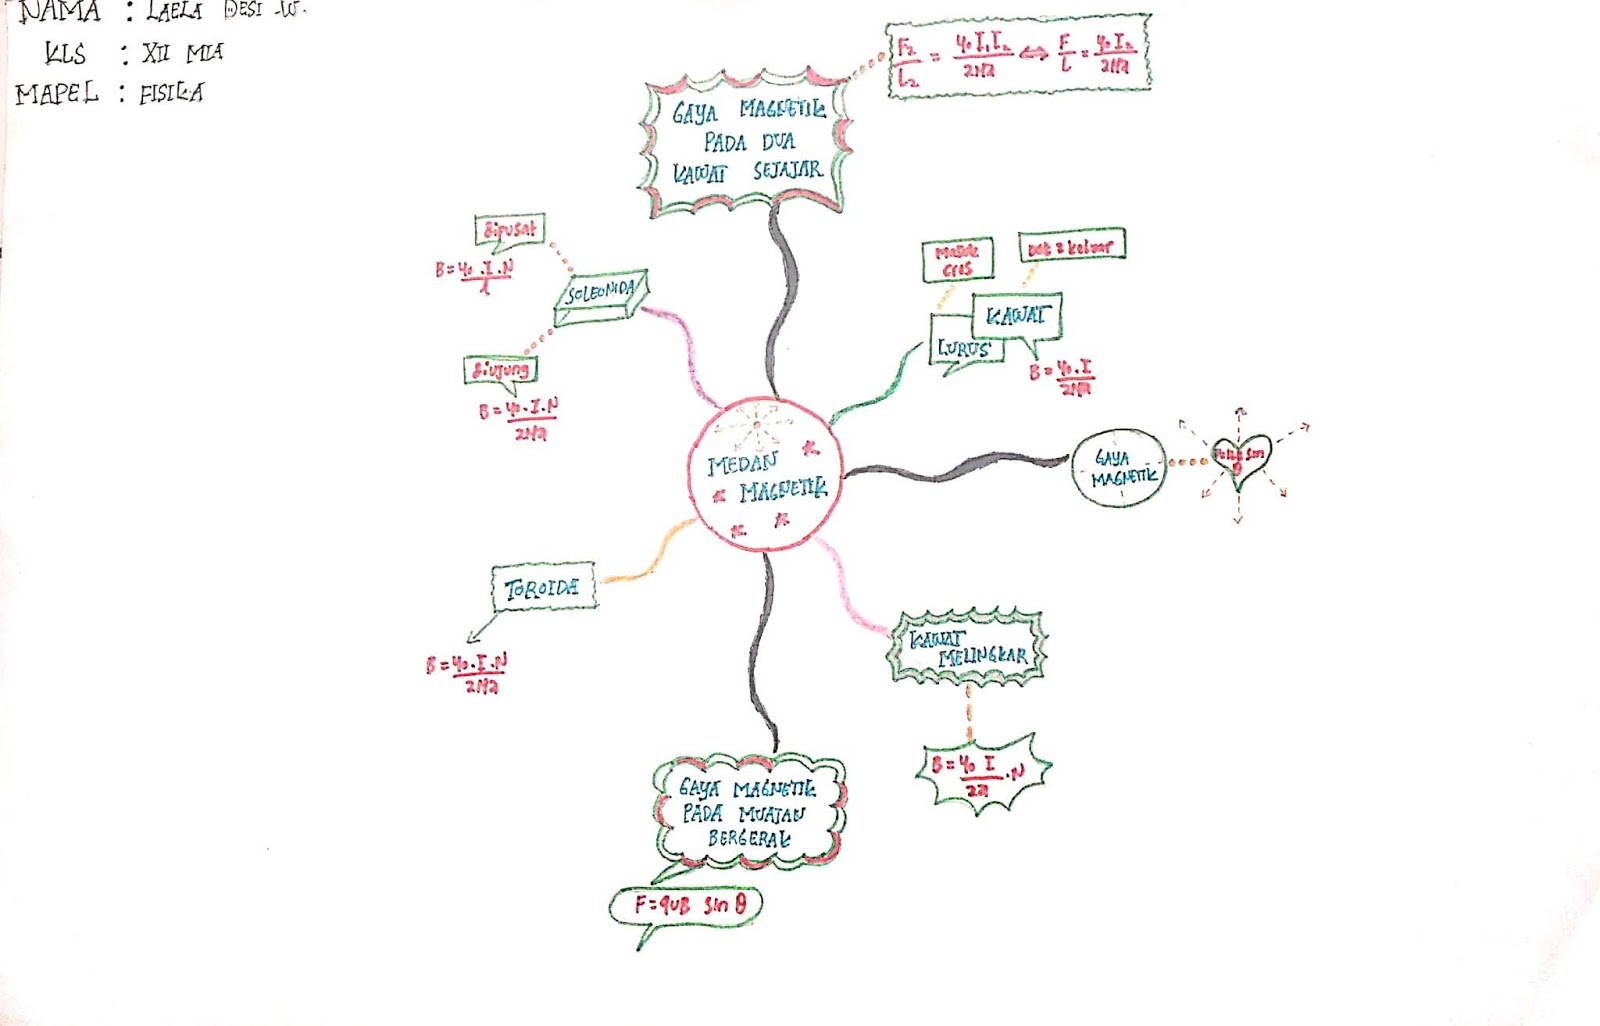 NAMA : LAELA DESI .W.
KLS : XII MIA
MAPEL : FISIKA
F₂/L₂ = μ₀ I₁ I₂/2πa ⇔ F/L = μ₀ I₂/2πa
GAYA MAGNETIK
PADA DUA
KAWAT SEJAJAR
dipusat
B = μ₀ . I . N/l
SOLEONIDA
diujung
B = μ₀ . I . N/2πa
Masuk
cros
dot = keluar
KAWAT
LURUS
B = μ₀ . I/2πa
MEDAN
MAGNETIK
GAYA
MAGNETIK
sin
θ
TOROIDA
B = μ₀ . I . N/2πa
KAWAT
MELINGKAR
B = μ₀ I/2a . N
GAYA MAGNETIK
PADA MUATAN
BERGERAK
F = qvB sin θ